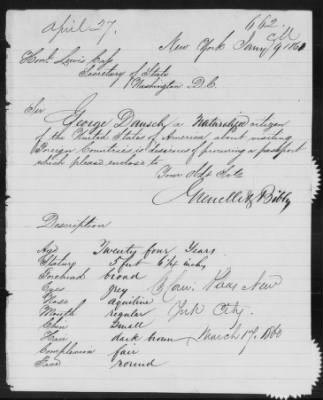 April 27.
662
New York Jany 9 1860
Honl. Lewis Cass
Secretary of State
Washington D.C.
Sir
George Dausch, a Naturalized citizen
of the United States of America about visiting
Foreign Countries is desirous of procuring a passport
which please enclose to
Your Obdt Svts
& Bibby
Description
Age Twenty four Years
Stature 5 feet 6 3/4 inches
Forehead broad
Eyes grey
Nose aquiline
New
Mouth regular
York City.
Chin small
Hair dark brown
March 17, 1860
Complexion fair
Face round